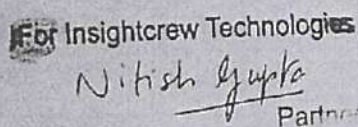 For Insightcrew Technologies
Nitish Gupta
Partner